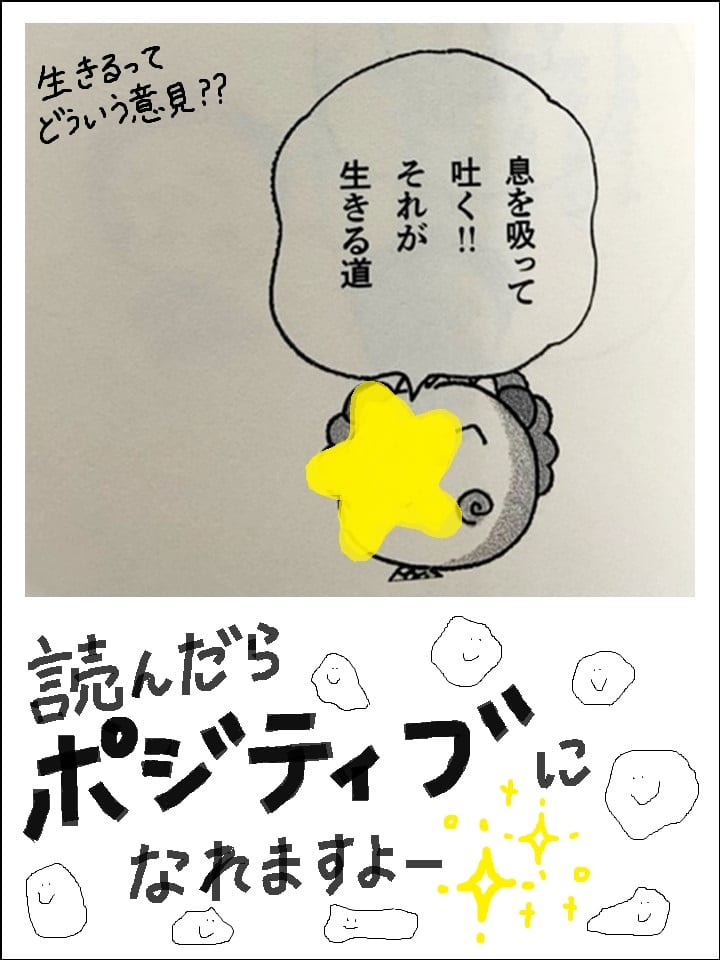 生きるって
どういう意見??
息を吸って
吐く!!
それが
生きる道
読んだら
ポジティブに
なれますよー